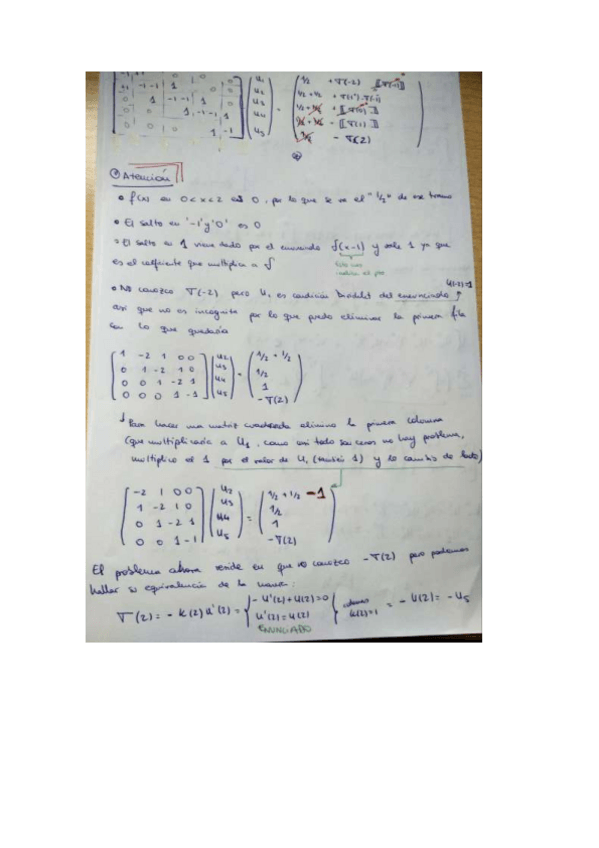 -1 1 0 0
+1 -1 -1 1 0 0 u₁ 1/2 + σ(-2) [[σ(-1)]]
0 1 -1 -1 1 0 u₂ 1/2 + 1/2
0 0 1 -1 -1 1 u₃ = 1/2 + 1/2 + [[σ(0)]]
0 0 u₄ 1/2 + 1/2 - [[σ(1)]]
0 0 0 1 -1 u₅ 1/2 - σ(2)
Atención
• f(x) en 0 < x < 2 es 0, por lo que se va el "1/2" de ese termo
• El salto en '-1' y '0' es 0
El salto en 1 viene dado por el enunciado δ(x-1) y vale 1 ya que
es el coeficiente que multiplica a δ
• No conozco σ(-2) pero u₁ es condición Dirichlet del enunciado u(-2)=1
así que no es incognita por lo que puedo eliminar la primera fila
con lo que quedaría
1 -2 1 0 0 u₂ 1/2 + 1/2
0 1 -2 1 0 u₃ = 1/2
0 0 1 -2 1 u₄ 1
0 0 0 1 -1 u₅ -σ(2)
Para hacer una matriz cuadrada elimino la primera columna
(que multiplicaría a u₁, como casi todo son ceros no hay problema,
multiplico el 1 por el valor de u₁ (también 1) y lo cambio de lado)
-2 1 0 0 u₂ 1/2 + 1/2 -1
1 -2 1 0 u₃ = 1/2
0 1 -2 1 u₄ 1
0 0 1 -1 u₅ -σ(2)
El problema ahora reside en que no conozco -σ(2) pero podemos
hallar su equivalencia de la manera:
σ(2) = - K(2) u'(2) = { -u'(2) + u(2) = 0 } = - u(2) = - u₅
u'(2) = u(2) K(2)=1
ENUNCIADO